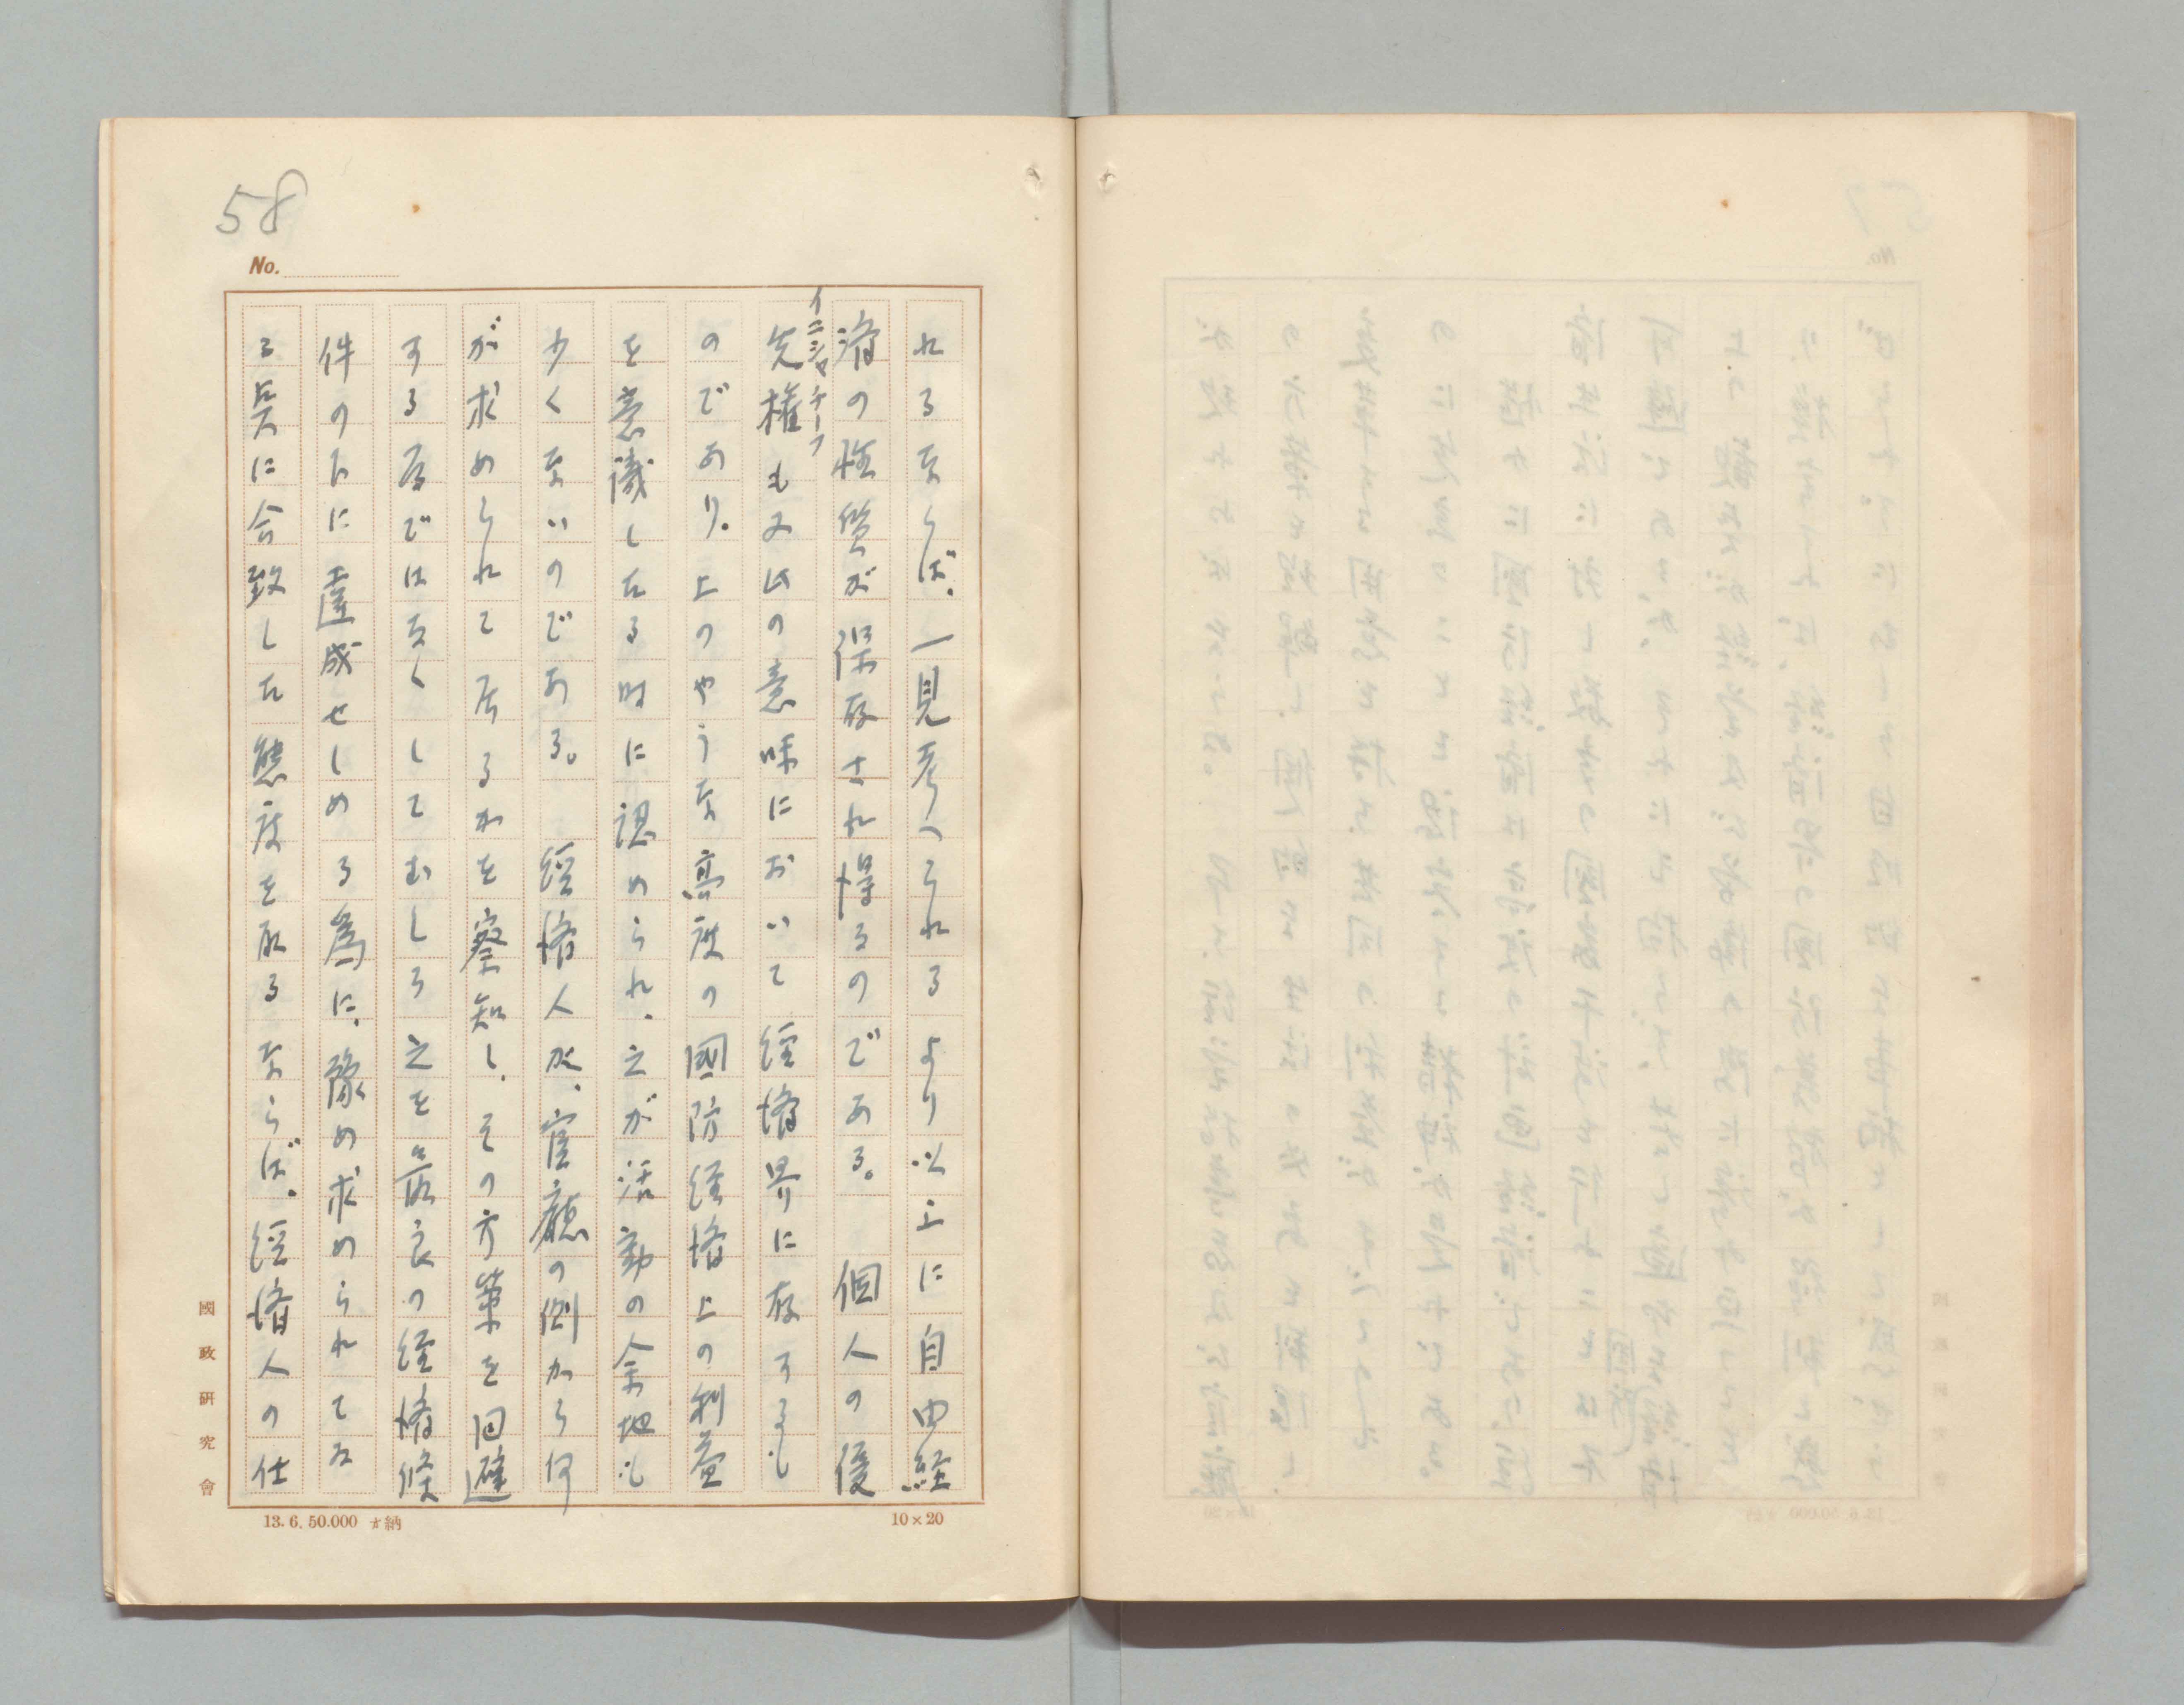 58
No.
れるならば、一見考へられるより以上に自由経
済の性質が保存され得るのである。 個人の優
イニシャチーブ
先権もみ此の意味において経済界に存するも
のであり、上のやうな高度の國防経済上の利益
を意識したる時に認められ、之が活動の余地も
少くないのである。 経済人が、官廳の側から何
が求められて居るかを察知し、その方策を回避
する度ではなくしてむしろ之を最良の経済條
件の下に達成せしめる為に、豫め求められてゐ
る点に合致した態度を取るならば、経済人の仕
國政研究會
13.6.50.000 納
10×20